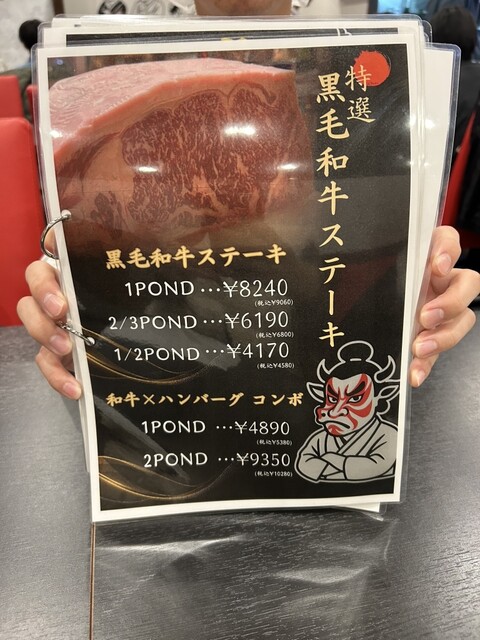 特選
黒毛和牛ステーキ
黒毛和牛ステーキ
1POND …¥8240
(税込¥9060)
2/3POND …¥6190
(税込¥6800)
1/2POND …¥4170
(税込¥4580)
和牛×ハンバーグ コンボ
1POND …¥4890
(税込¥5380)
2POND …¥9350
(税込¥10280)